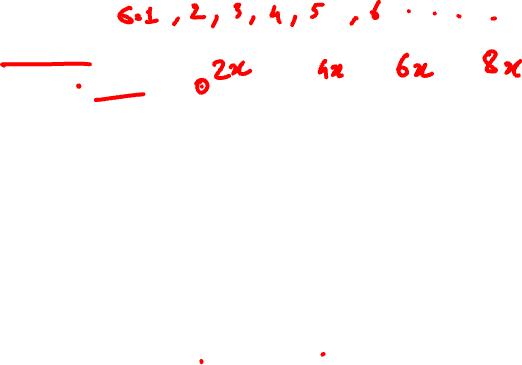 6:1, 2, 3, 4, 5, 6 . . . .
2x 4x 6x 8x